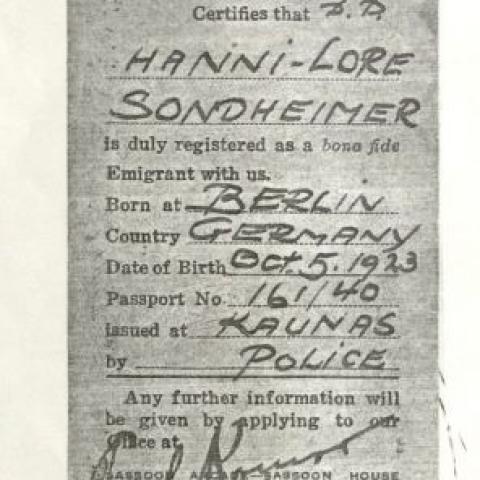 Certifies that
HANNI-LORE
SONDHEIMER
is duly registered as a bona fide
Emigrant with us.
Born at BERLIN
Country GERMANY
Date of Birth Oct. 5. 1923
Passport No. 161/40
issued at KAUNAS
by POLICE
Any further information will
be given by applying to our
Office at
SASSOON HOUSE